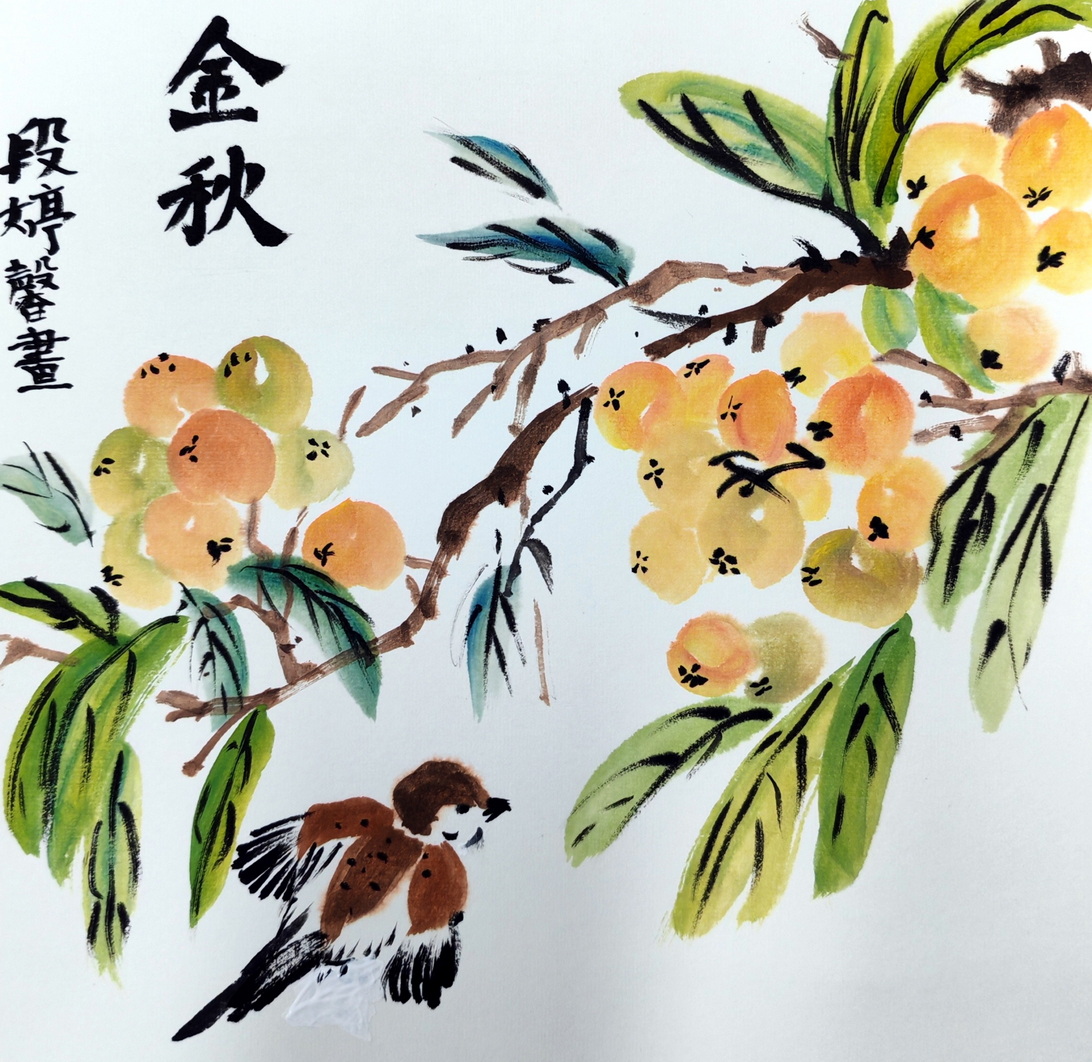 金秋
段婷馨畫